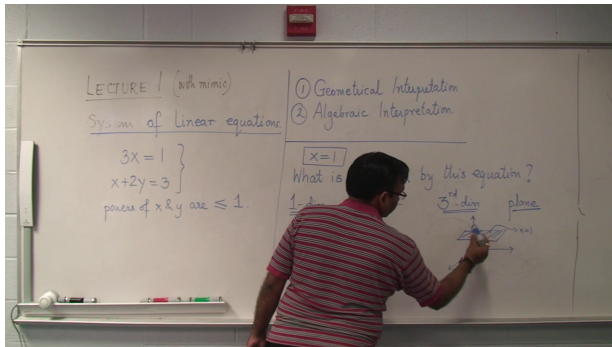 LECTURE 1 (with mimic)
System of Linear equations
3x = 1
x+2y = 3
powers of x & y are ≤ 1.
① Geometrical Interpretation
② Algebraic Interpretation
x=1
What is by this equation?
1-dim 3rd-dim plane
x=1